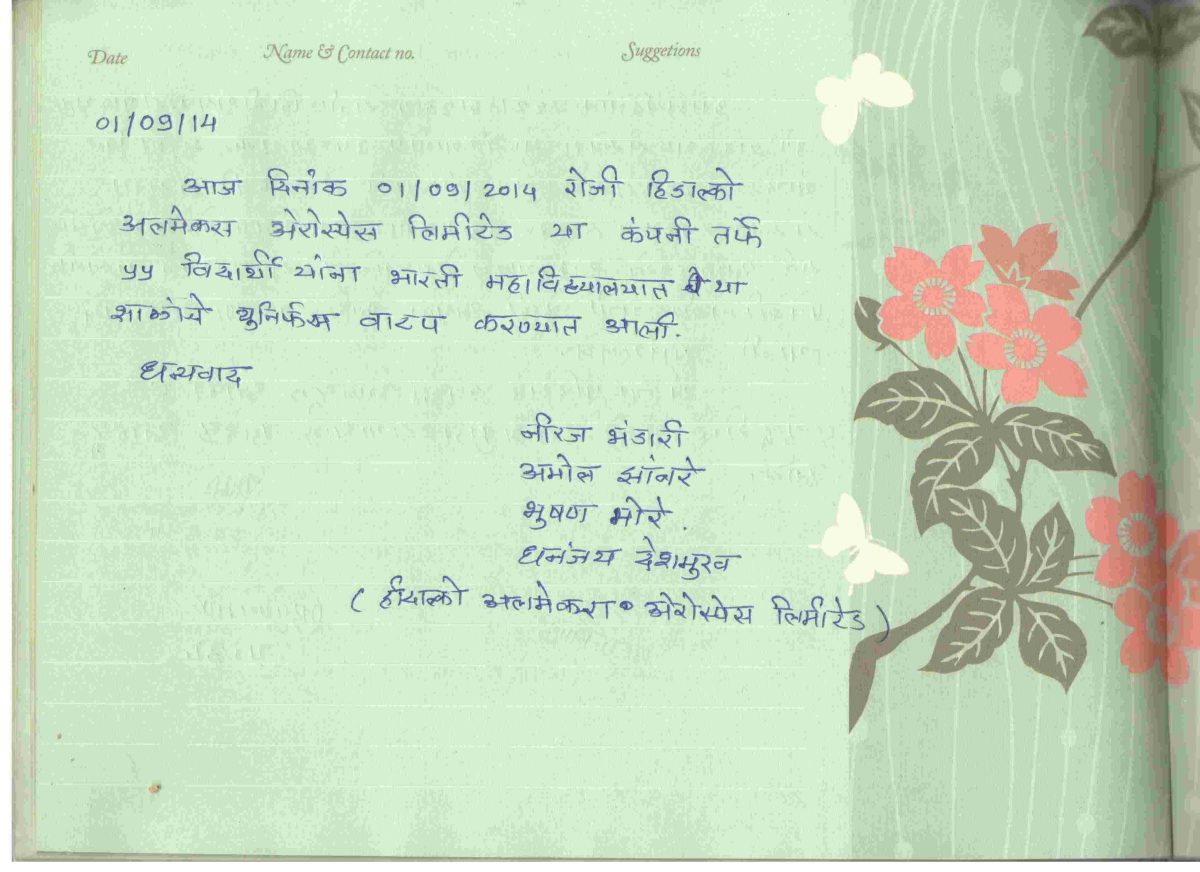 Date Name & Contact no. Suggetions
01/09/14
आज दिनांक 01/09/2014 रोजी हिंडाल्को
अलमेकस अेरोस्पेस लिमीटेड या कंपनी तर्फे
५५ विद्यार्थी यांना भारती महाविद्यालयात या
शाळेचे युनिर्फम वाटप करण्यात आली.
धन्यवाद
नीरज भंडारी
अमोल झांबरे
भुषण मोरे.
धनंजय देशमुख
( हींडाल्को अलमेकस अेरोस्पेस लिमीटेड )